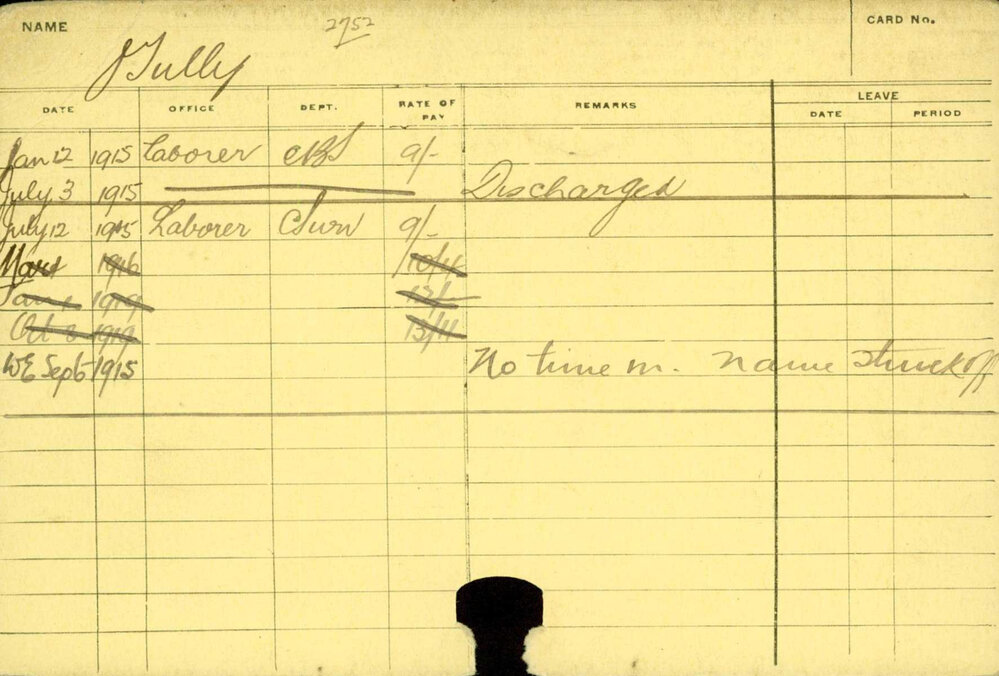 NAME 2752 CARD No.
J Tully
DATE OFFICE DEPT. RATE OF PAY REMARKS LEAVE
DATE PERIOD
Jan 12 1915 Laborer CBS 9/-
July 3 1915 Discharged
July 12 1915 Laborer CSurv 9/-
Mar 1 1916 10/4
Jan 1 1919
Oct 1919 13/11
WE Sept 5 1915 No time in. Name struck off